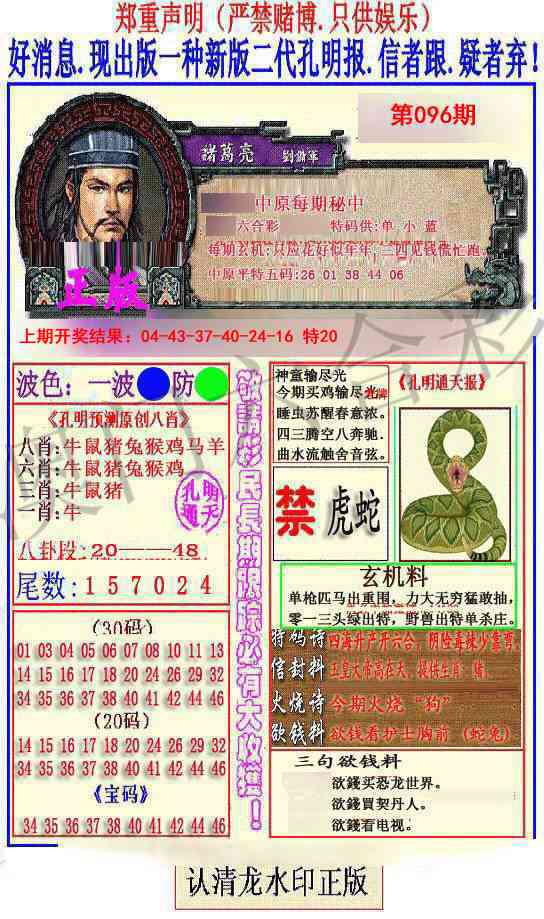 郑重声明（严禁赌博.只供娱乐）
好消息.现出版一种新版二代孔明报.信者跟.疑者弃!
第096期
諸葛亮 劉備軍
中原每期秘中
六合彩 特码供:单 小 蓝
每期玄机:只应花好似年年,二四见钱慌忙跑
中原平特五码:26 01 38 44 06
正版
上期开奖结果：04-43-37-40-24-16 特20
波色：一波 防
《孔明预测原创八肖》
八肖:牛鼠猪兔猴鸡马羊
六肖:牛鼠猪兔猴鸡
三肖:牛鼠猪
一肖:牛
孔明通天
八卦段:20——48
尾数:157024
(30码)
01 03 04 05 06 07 08 10 11 13
14 15 16 17 18 20 24 26 29 32
34 35 36 37 38 40 41 42 44 46
(20码)
14 15 16 17 18 20 24 26 29 32
34 35 36 37 38 40 41 42 44 46
《宝码》
34 35 36 37 38 40 41 42 44 46
敬請彩民長期跟踪必有大收獲！
神童输尽光
今期买鸡输尽光
睡虫苏醒春意浓。
四三腾空八奔驰.
曲水流触舍音弦。
《孔明通天报》
禁 虎蛇
玄机料
单枪匹马出重围，力大无穷猛敢抽,
零一三头绿出特，野兽出特单杀庄。
特码诗 四海升产开六合，阴险毒辣少靠卖,
信封料 玉皇大帝高在天，提供生肖：猪,
火烧诗 今期火烧“狗”
欲钱料 欲钱看护士胸前（蛇兔）
三句欲钱料
欲錢买恐龙世界。
欲錢買契丹人。
欲錢看电视。
认清龙水印正版